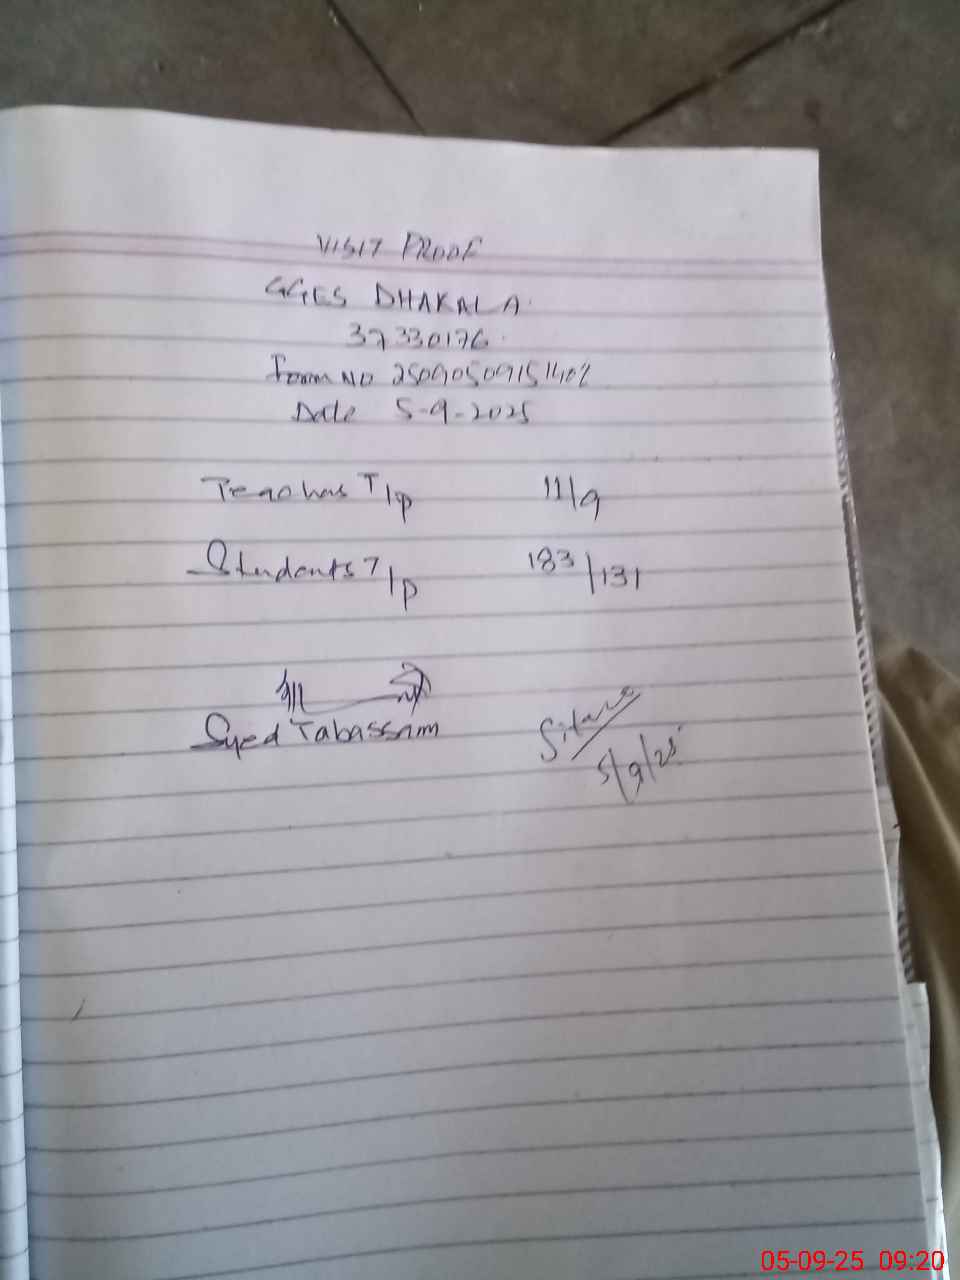 VISIT PROOF
GGES DHAKALA
37330176
Form NO 250905091511402
Date 5-9-2025
Teachas T/p 11/9
Students T/p 183/131
Syed Tabassam
5/9/25
05-09-25 09:20